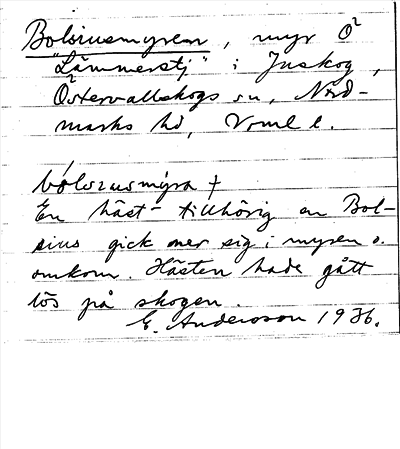 Bolsiusmyren, myr O²
"Lämmerstj" i Juskog,
Östervallskogs sn, Nord-
marks hd, Vrml l.
bólsiusmýra †
En häst tillhörig en Bol-
sius gick ner sig i myren o.
omkom. Hästen hade gått
lös på skogen.
E. Andersson 1936.